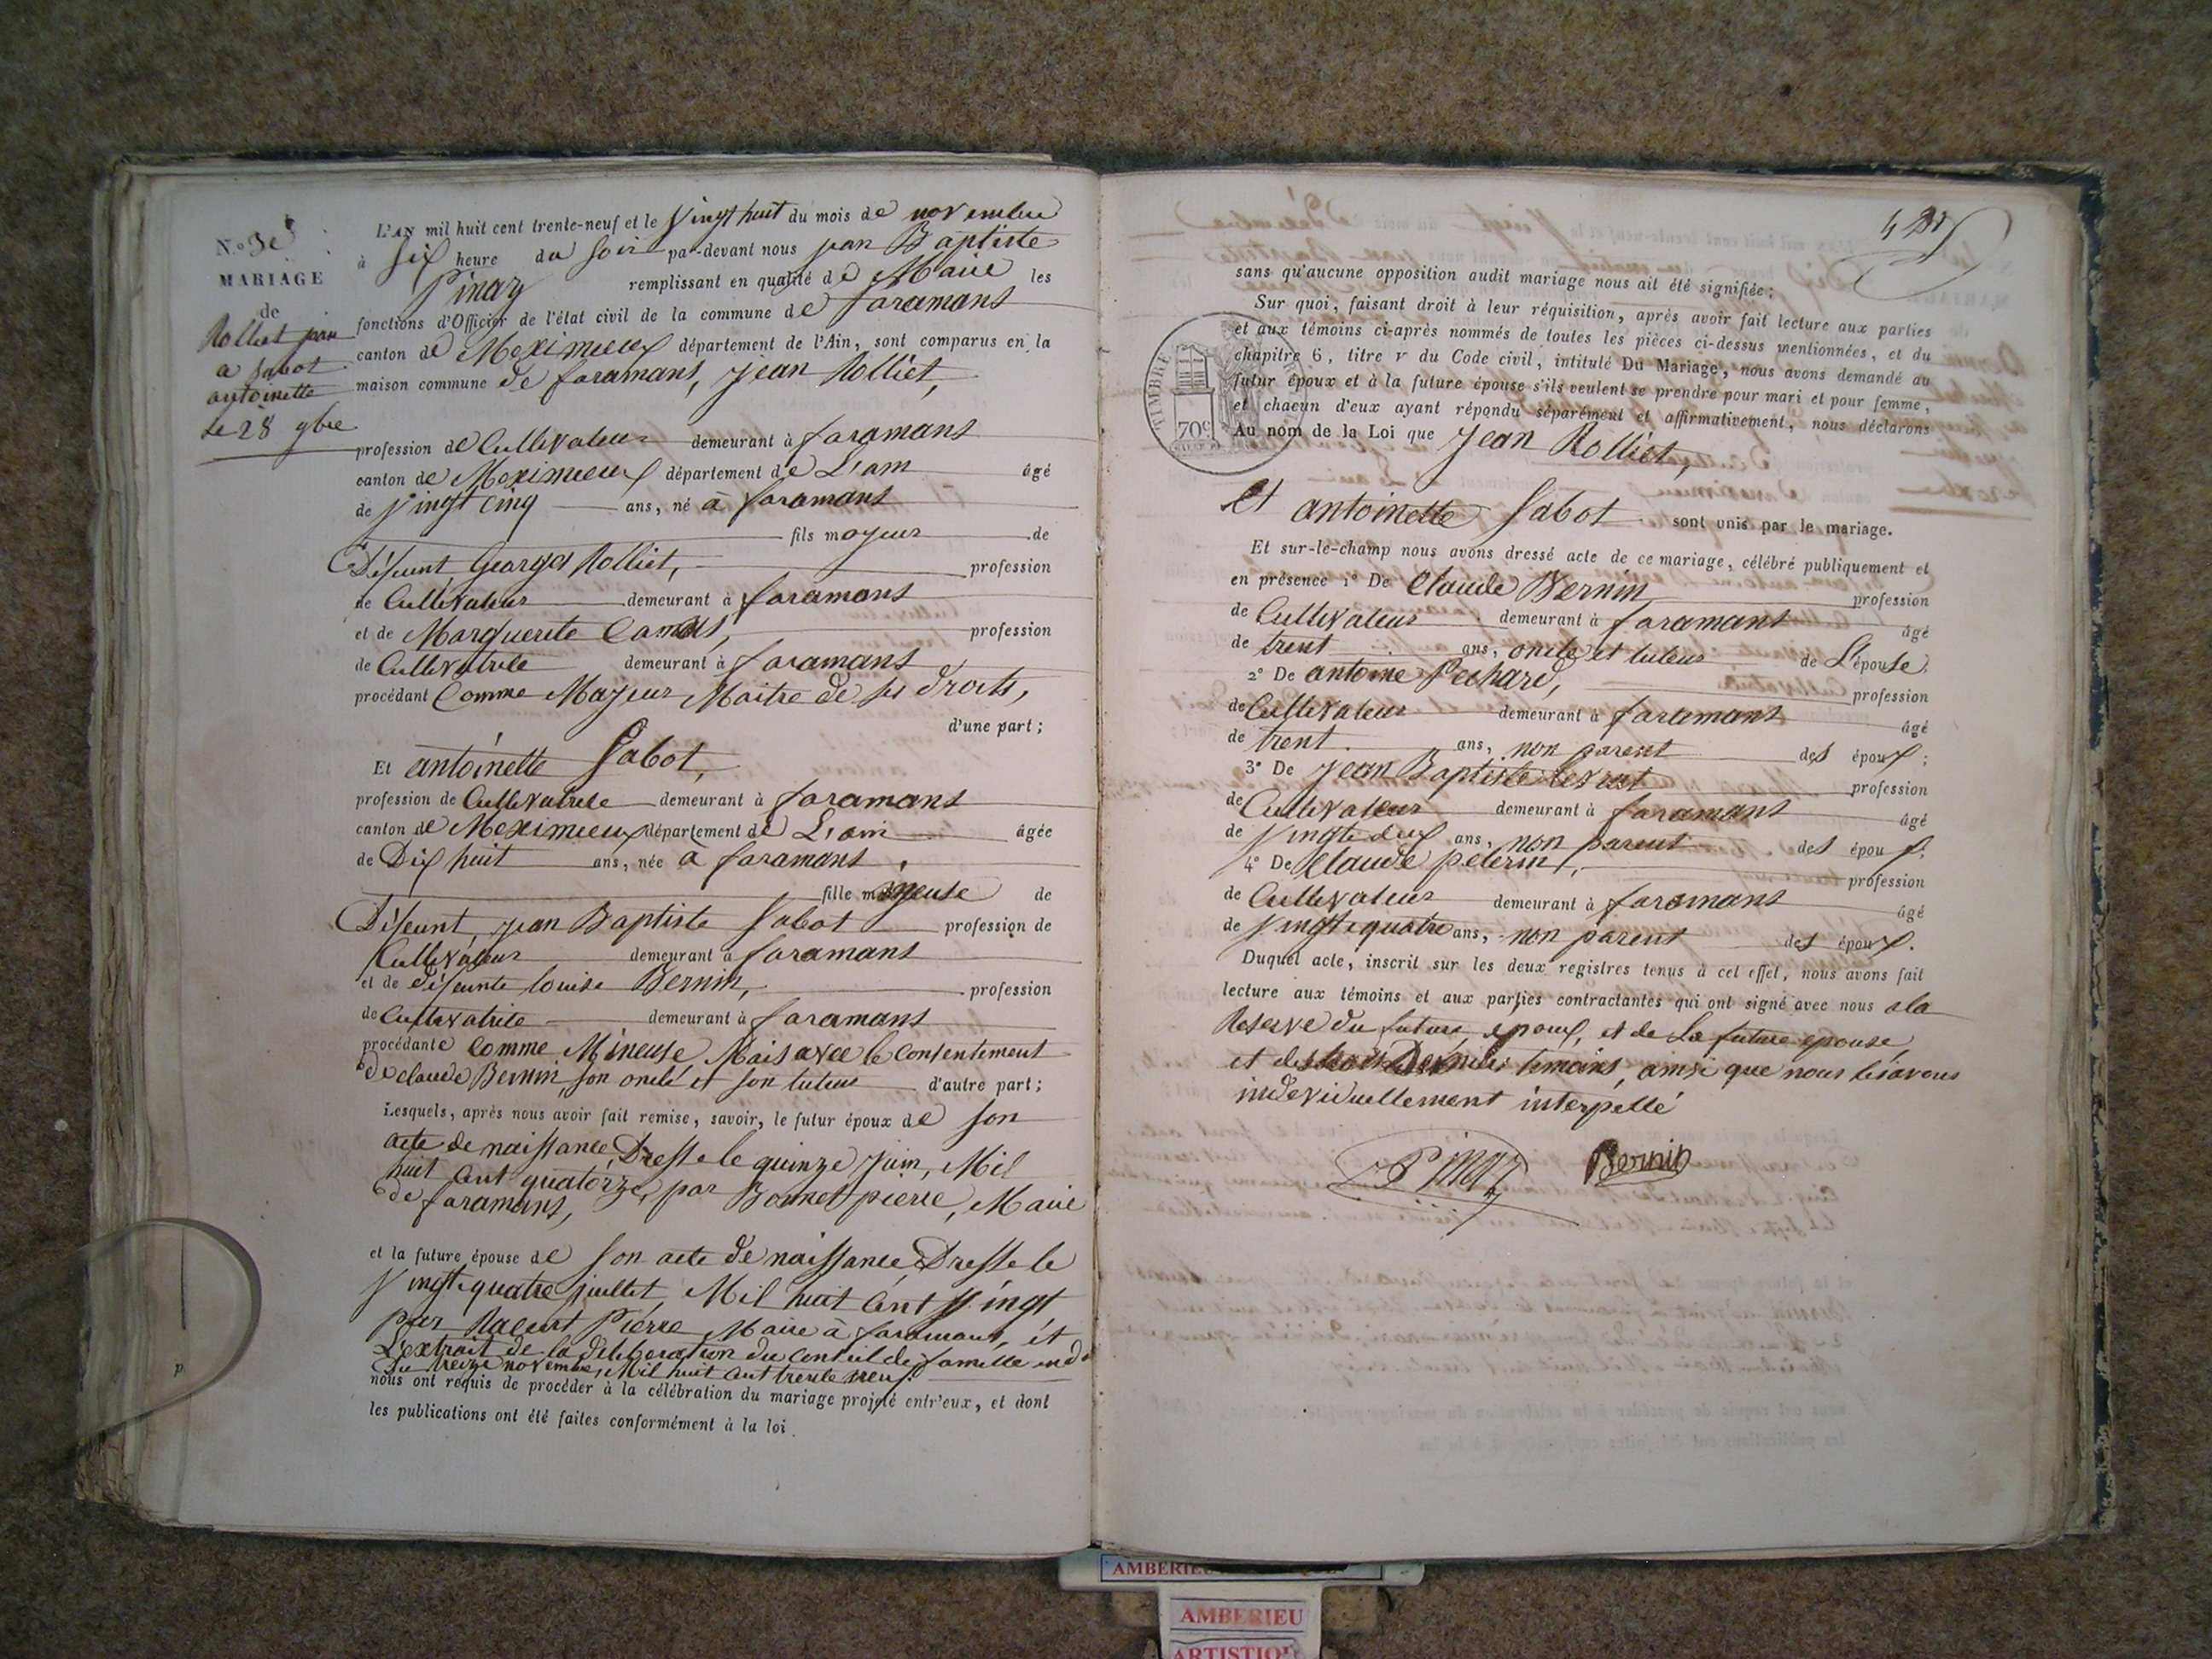 N.º 3e
MARIAGE
de
Rolliet jean
a Sabot
antoinette
le 28 9bre
L'AN mil huit cent trente-neuf et le Vingt huit du mois de novembre
à Six heure du Soir par-devant nous jean Baptiste
Pinaz remplissant en qualité de Maire les
fonctions d'Officier de l'état civil de la commune de faramans
canton de Meximieux département de l'Ain, sont comparus en la
maison commune de faramans, Jean Rolliet,
profession de Cultivateur demeurant à faramans
canton de Meximieux département de L'ain âgé
de Vingt cinq ans, né à faramans
fils mayeur de
Défeunt George Rolliet, profession
de Cultivateur demeurant à faramans
et de Marguerite profession
de Cultivatrice demeurant à faramans
procédant Comme Majeur Maitre de ses droits,
d'une part;
Et antoinette Sabot,
profession de Cultivatrice demeurant à faramans
canton de Meximieux département de L'ain âgée
de Dix huit ans, née à faramans,
fille de
Défeunt jean Baptiste Sabot profession de
Cultivateur demeurant à faramans
et de défeunte louise Bernin, profession
de Cultivatrice demeurant à faramans
procédante Comme Mineuse Mais avec le Consentement
de claude Bernin son oncle et son tuteur d'autre part;
Lesquels, après nous avoir fait remise, savoir, le futur époux de son
acte de naissance Dresse le quinze juin, Mil
huit Cent quatorze, par Bonnet pierre, Maire
de faramans,
et la future épouse de Son acte de naissance Dresse le
Vingt quatre juillet Mil huit Cent Vingt
par Pierre Maire à faramans, et
L'extrait de la deliberation du Conseil de famille
Du treize novembre, Mil huit Cent trente neuf.
nous ont requis de procéder à la célébration du mariage projeté entr'eux, et dont
les publications ont été faites conformément à la loi.
sans qu'aucune opposition audit mariage nous ait été signifiée;
Sur quoi, faisant droit à leur réquisition, après avoir fait lecture aux parties
et aux témoins ci-après nommés de toutes les pièces ci-dessus mentionnées, et du
chapitre 6, titre v du Code civil, intitulé Du Mariage, nous avons demandé au
futur époux et à la future épouse s'ils veulent se prendre pour mari et pour femme,
et chacun d'eux ayant répondu séparément et affirmativement, nous déclarons
Au nom de la Loi que Jean Rolliet,
TIMBRE
70c
Et antoinette Sabot sont unis par le mariage.
Et sur-le-champ nous avons dressé acte de ce mariage, célébré publiquement et
en présence 1º De Claude Bernin profession
de Cultivateur demeurant à faramans âgé
de trent ans, oncle et tuteur de L'épouse,
2º De antoine Pechard, profession
de Cultivateur demeurant à faramans âgé
de trent ans, non parent des époux;
3º De Jean Baptiste levrat profession
de Cultivateur demeurant à faramans âgé
de Vingt deux ans, non parent des époux
4º De Claude pelerin, profession
de Cultivateur demeurant à faramans âgé
de Vingt quatre ans, non parent des époux.
Duquel acte, inscrit sur les deux registres tenus à cet effet, nous avons fait
lecture aux témoins et aux parties contractantes qui ont signé avec nous a la
Reserve du future epoux, et de La future epouse,
et des trois Dernier temoins, ainsi que nous les avons
individuellement interpellé
Pinaz Bernin
AMBERIEU
AMBERIEU
ARTISTIQUE